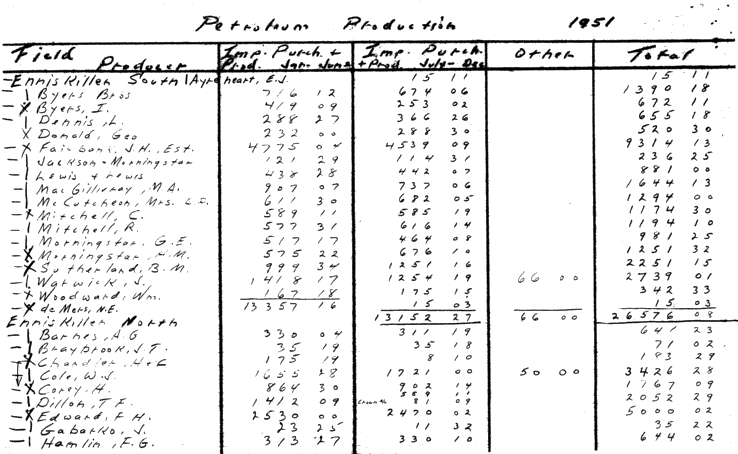 Petroleum Production 1951
Field Producer Imp. Purch. + Prod. Jan- June Imp. Purch. + Prod. July- Dec Other Total
Enniskillen South 1 Ayreheart, E.J. 15 11 15 11
Byers Bros 716 12 674 06 1390 18
Byers, I. 419 09 253 02 672 11
Dennis, L. 288 27 366 26 655 18
Donald, Geo 232 00 288 30 520 30
Fairbank, J.H., Est. 4775 04 4539 09 9314 13
Jackson-Morningstar 121 29 114 31 236 25
Lewis + Lewis 438 28 442 07 881 00
MacGillivray, M.A. 907 07 737 06 1644 13
McCutcheon, Mrs. L.E. 611 30 682 05 1294 00
Mitchell, C. 589 11 585 19 1174 30
Mitchell, R. 577 31 616 14 1194 10
Morningstar, G.E. 517 17 464 08 981 25
Morningstar, H.M. 575 22 676 10 1251 32
Sutherland, B.M. 999 34 1251 16 2251 15
Warwick, J. 1418 17 1254 19 66 00 2739 01
Woodward, Wm. 167 18 175 15 342 33
de Mers, N.E. 15 03 15 03
13357 16 13152 27 66 00 26576 08
Enniskillen North
Barnes, A.G 330 04 311 19 641 23
Braybrook, J.T. 35 19 35 18 71 02
Chandler, H+E 175 19 8 10 183 29
Cole, W.J. 1655 28 1721 00 50 00 3426 28
Corey, H. 864 30 902 14 1767 09
Dillon, T.F. 1412 09 559 11 81 09 2052 29
Edward, F.H. 2530 00 2470 02 5000 02
Gabarko, J. 23 25 11 32 35 22
Hamlin, F.G. 313 27 330 10 644 02